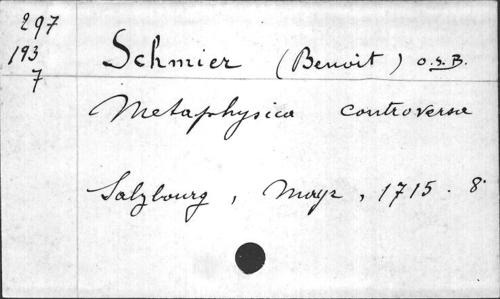 297
193
7
Schmier (Benoit) O.S.B.
Metaphysica controversa
Salzbourg, Mayr, 1715. 8°